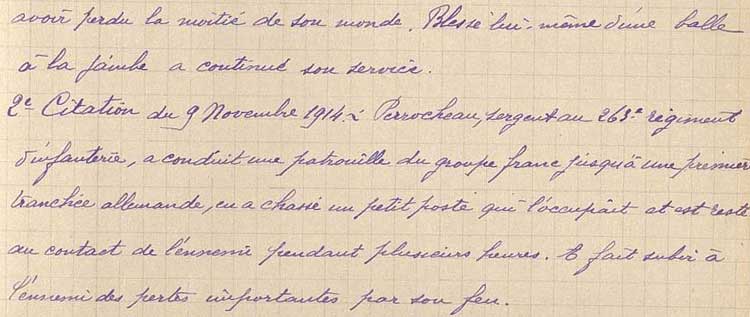 avoir perdu la moitié de son monde. Blessé lui-même d'une balle
à la jambe a continué son service.
2e Citation du 9 Novembre 1914 : Perrocheau, sergent au 263e régiment
d'infanterie, a conduit une patrouille du groupe franc jusqu'à une premier
tranchée allemande, en a chassé un petit poste qui l'occupait et est resté
au contact de l'ennemi pendant plusieurs heures. A fait subir à
l'ennemi des pertes importantes par son feu.